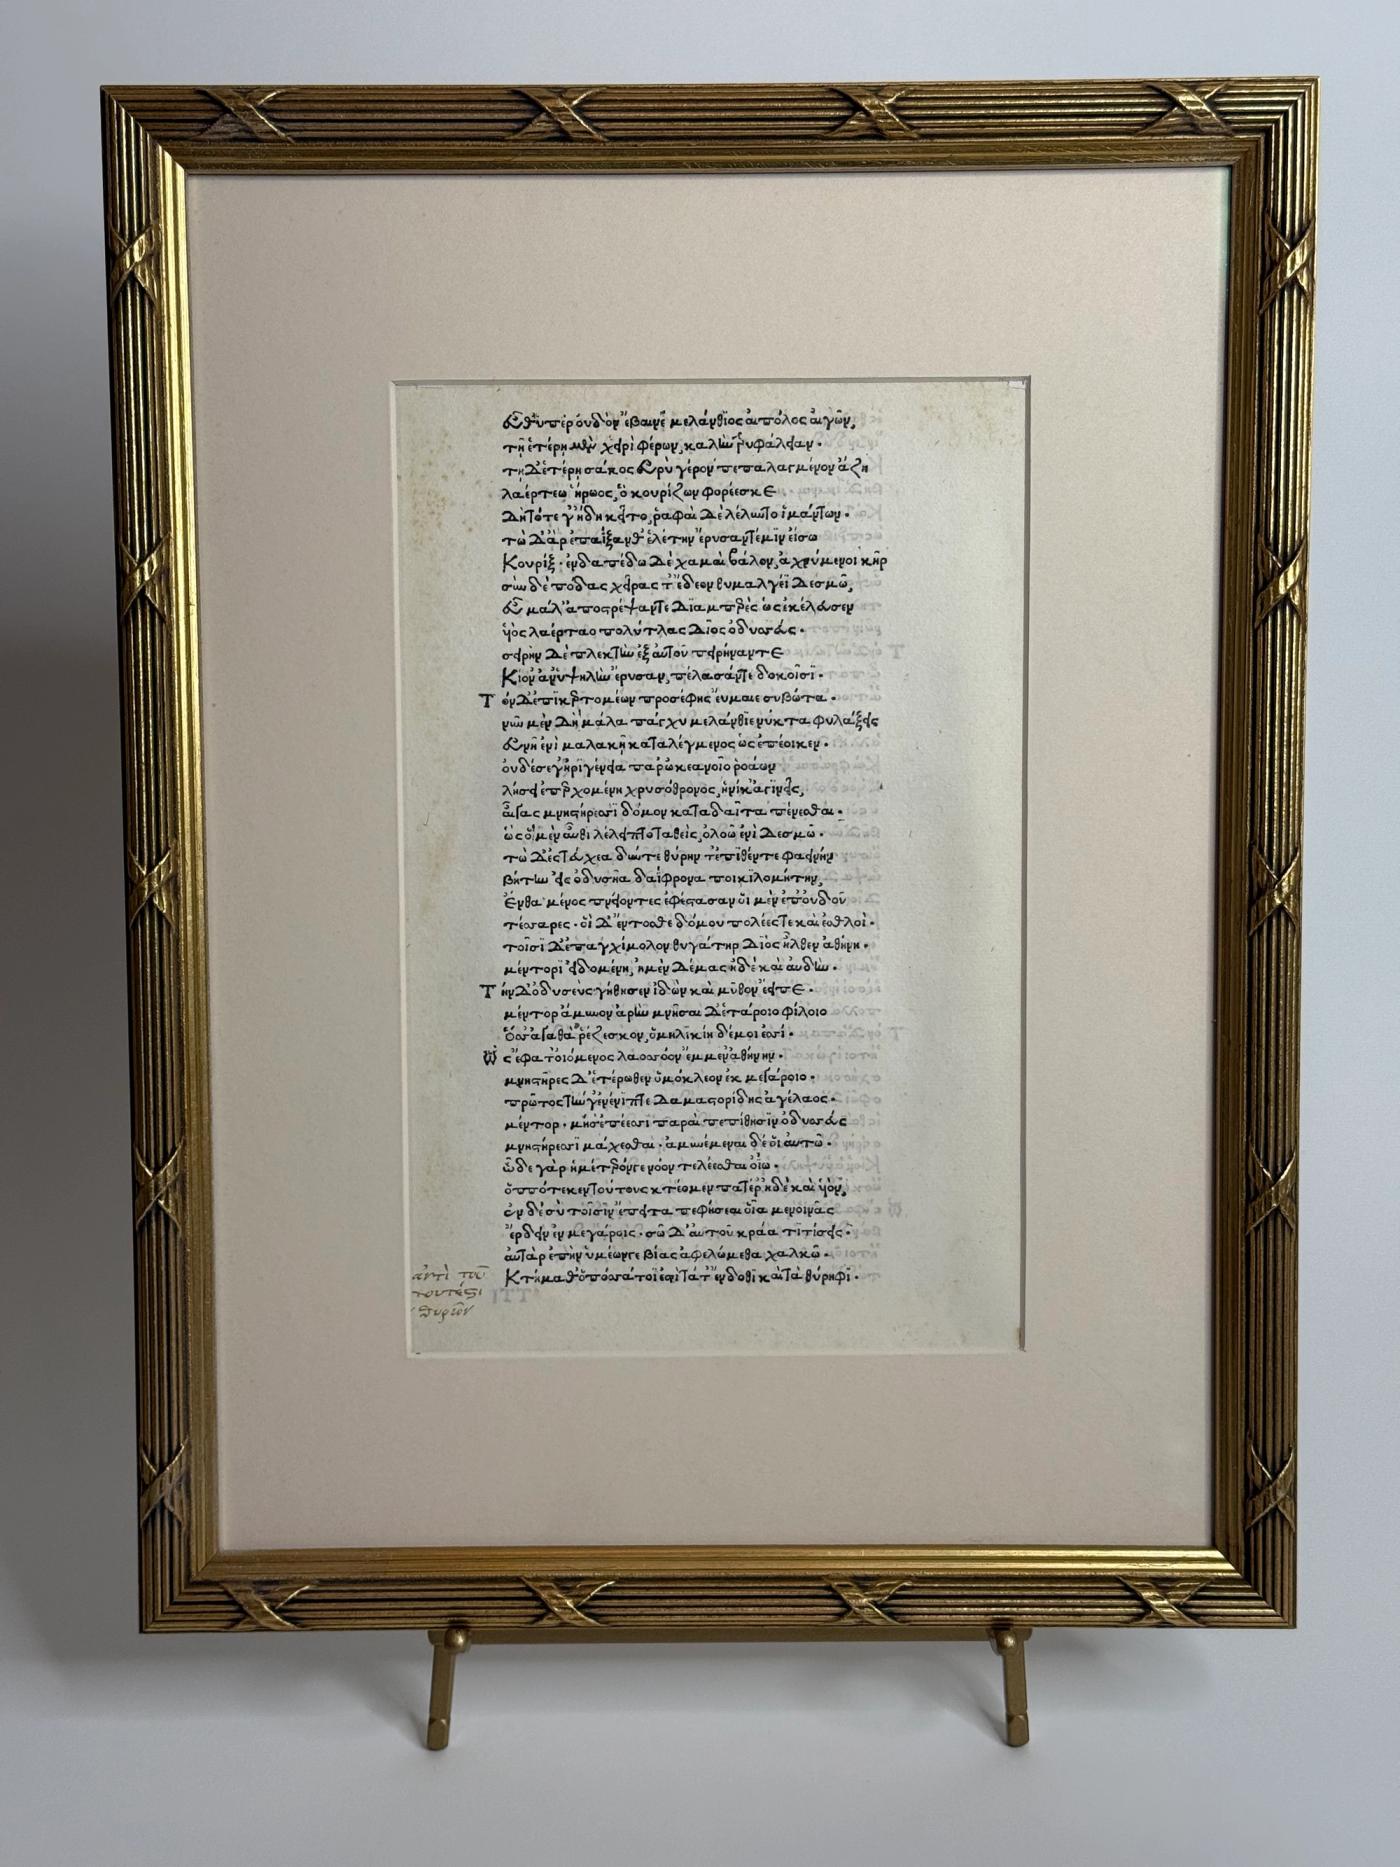 Εὖθ' ὑπὲρ οὐδὸν ἔβαινε μελάνθιος αἰπόλος αἰγῶν,
τῇ ἑτέρῃ μὲν χειρὶ φέρων, καλὴν τρυφάλειαν·
τῇ δ' ἑτέρῃ σάκος εὐρὺ γέρον πεπαλαγμένον ἄζῃ
λαέρτεω ἥρωος, ὃ κουρίζων φορέεσκε
δὴ τότε γ' ἤδη κεῖτο, ῥαφαὶ δὲ λέλυντο ἱμάντων·
τὼ δ' ἄρ' ἐπαΐξανθ' ἑλέτην ἔρυσάν τέ μιν εἴσω
Κουρίξ· ἐν δαπέδω δὲ χαμαὶ βάλον, ἀχνύμενοι κῆρ
σὺν δὲ πόδας χεῖρας τ' ἔδεον θυμαλγέϊ δεσμῶ,
εὖ μάλ' ἀποστρέψαντε διαμπερὲς ὡς ἐκέλευσεν
υἱὸς λαέρταο πολύτλας δῖος ὀδυσσεύς·
σειρὴν δὲ πλεκτὴν ἐξ αὐτοῦ πειρήναντε
Κίον' ἀν' ὑψηλὴν ἔρυσαν, πέλασάν τε δοκοῖσι·
Τὸν δ' ἐπικερτομέων προσέφης εὔμαιε συβῶτα·
νῦν μὲν δὴ μάλα πάγχυ μελάνθιε νύκτα φυλάξεις
εὐνῇ ἐνὶ μαλακῇ καταλέγμενος ὡς ἐπέοικεν·
οὐδέ σε γ' ἠριγένεια παρ' ὠκεανοῖο ῥοάων
λήσει ἐπερχομένη χρυσόθρονος, ἡνίκ' ἀγινεῖς,
αἶγας μνηστήρεσσι δόμον κάτα δαῖτα πένεσθαι·
ὣς ὁ μὲν αὖθι λέλειπτο ταθεὶς, ὀλοῶ ἐνὶ δεσμῶ·
τὼ δ' ἐς τεύχεα δύντε θύρην τ' ἐπιθέντε φαεινήν
βήτην εἰς ὀδυσῆα δαΐφρονα ποικιλομήτην,
Ἔνθα μένος πνείοντες ἐφέστασαν οἱ μὲν ἐπ' οὐδοῦ
τέσσαρες· οἱ δ' ἔντοσθε δόμου πολέες τε καὶ ἐσθλοί·
τοῖσι δ' ἐπ' ἀγχίμολον θυγάτηρ διὸς ἦλθεν ἀθήνη·
μέντορι εἰδομένη, ἠμὲν δέμας ἠδὲ καὶ αὐδήν·
Τὴν δ' ὀδυσεὺς γήθησεν ἰδὼν καὶ μῦθον ἔειπε·
μέντορ ἄμυνον ἀρὴν μνῆσαι δ' ἑτάροιο φίλοιο
ὅς σ' ἀγαθὰ ῥέζεσκον, ὁμηλικίη δέ μοι ἐσσί·
Ὣς ἔφατ' οἰόμενος λαοσσόον ἔμμεν ἀθήνην·
μνηστῆρες δ' ἑτέρωθεν ὁμόκλεον ἐκ μεγάροιο·
πρῶτος τήν γ' ἐνένιπτε δαμαστορίδης ἀγέλαος·
μέντορ· μή σ' ἐπέεσσι παραὶ πεπίθησιν ὀδυσσεύς
μνηστήρεσσι μάχεσθαι· ἀμυνέμεναι δέ οἱ αὐτῶ·
ὧδε γὰρ ἡμέτερόν γε νόον τελέεσθαι ὀΐω·
ὁππότε κεν τούτους κτέομεν πατέρ' ἠδὲ καὶ υἱόν,
ἐν δὲ σὺ τοῖσιν ἔπειτα πεφήσεαι οἷα μενοινᾶς
ἔρδειν ἐν μεγάροις· σῶ δ' αὐτοῦ κράατι τίσεις·
αὐτὰρ ἐπὴν ὑμέων γε βίας ἀφελώμεθα χαλκῶ·
Κτήμαθ' ὁπόσσα τοί ἐστι τά τ' ἔνδοθι καὶ τὰ θύρηφι·
ἀντὶ τοῦ
τουτέστι